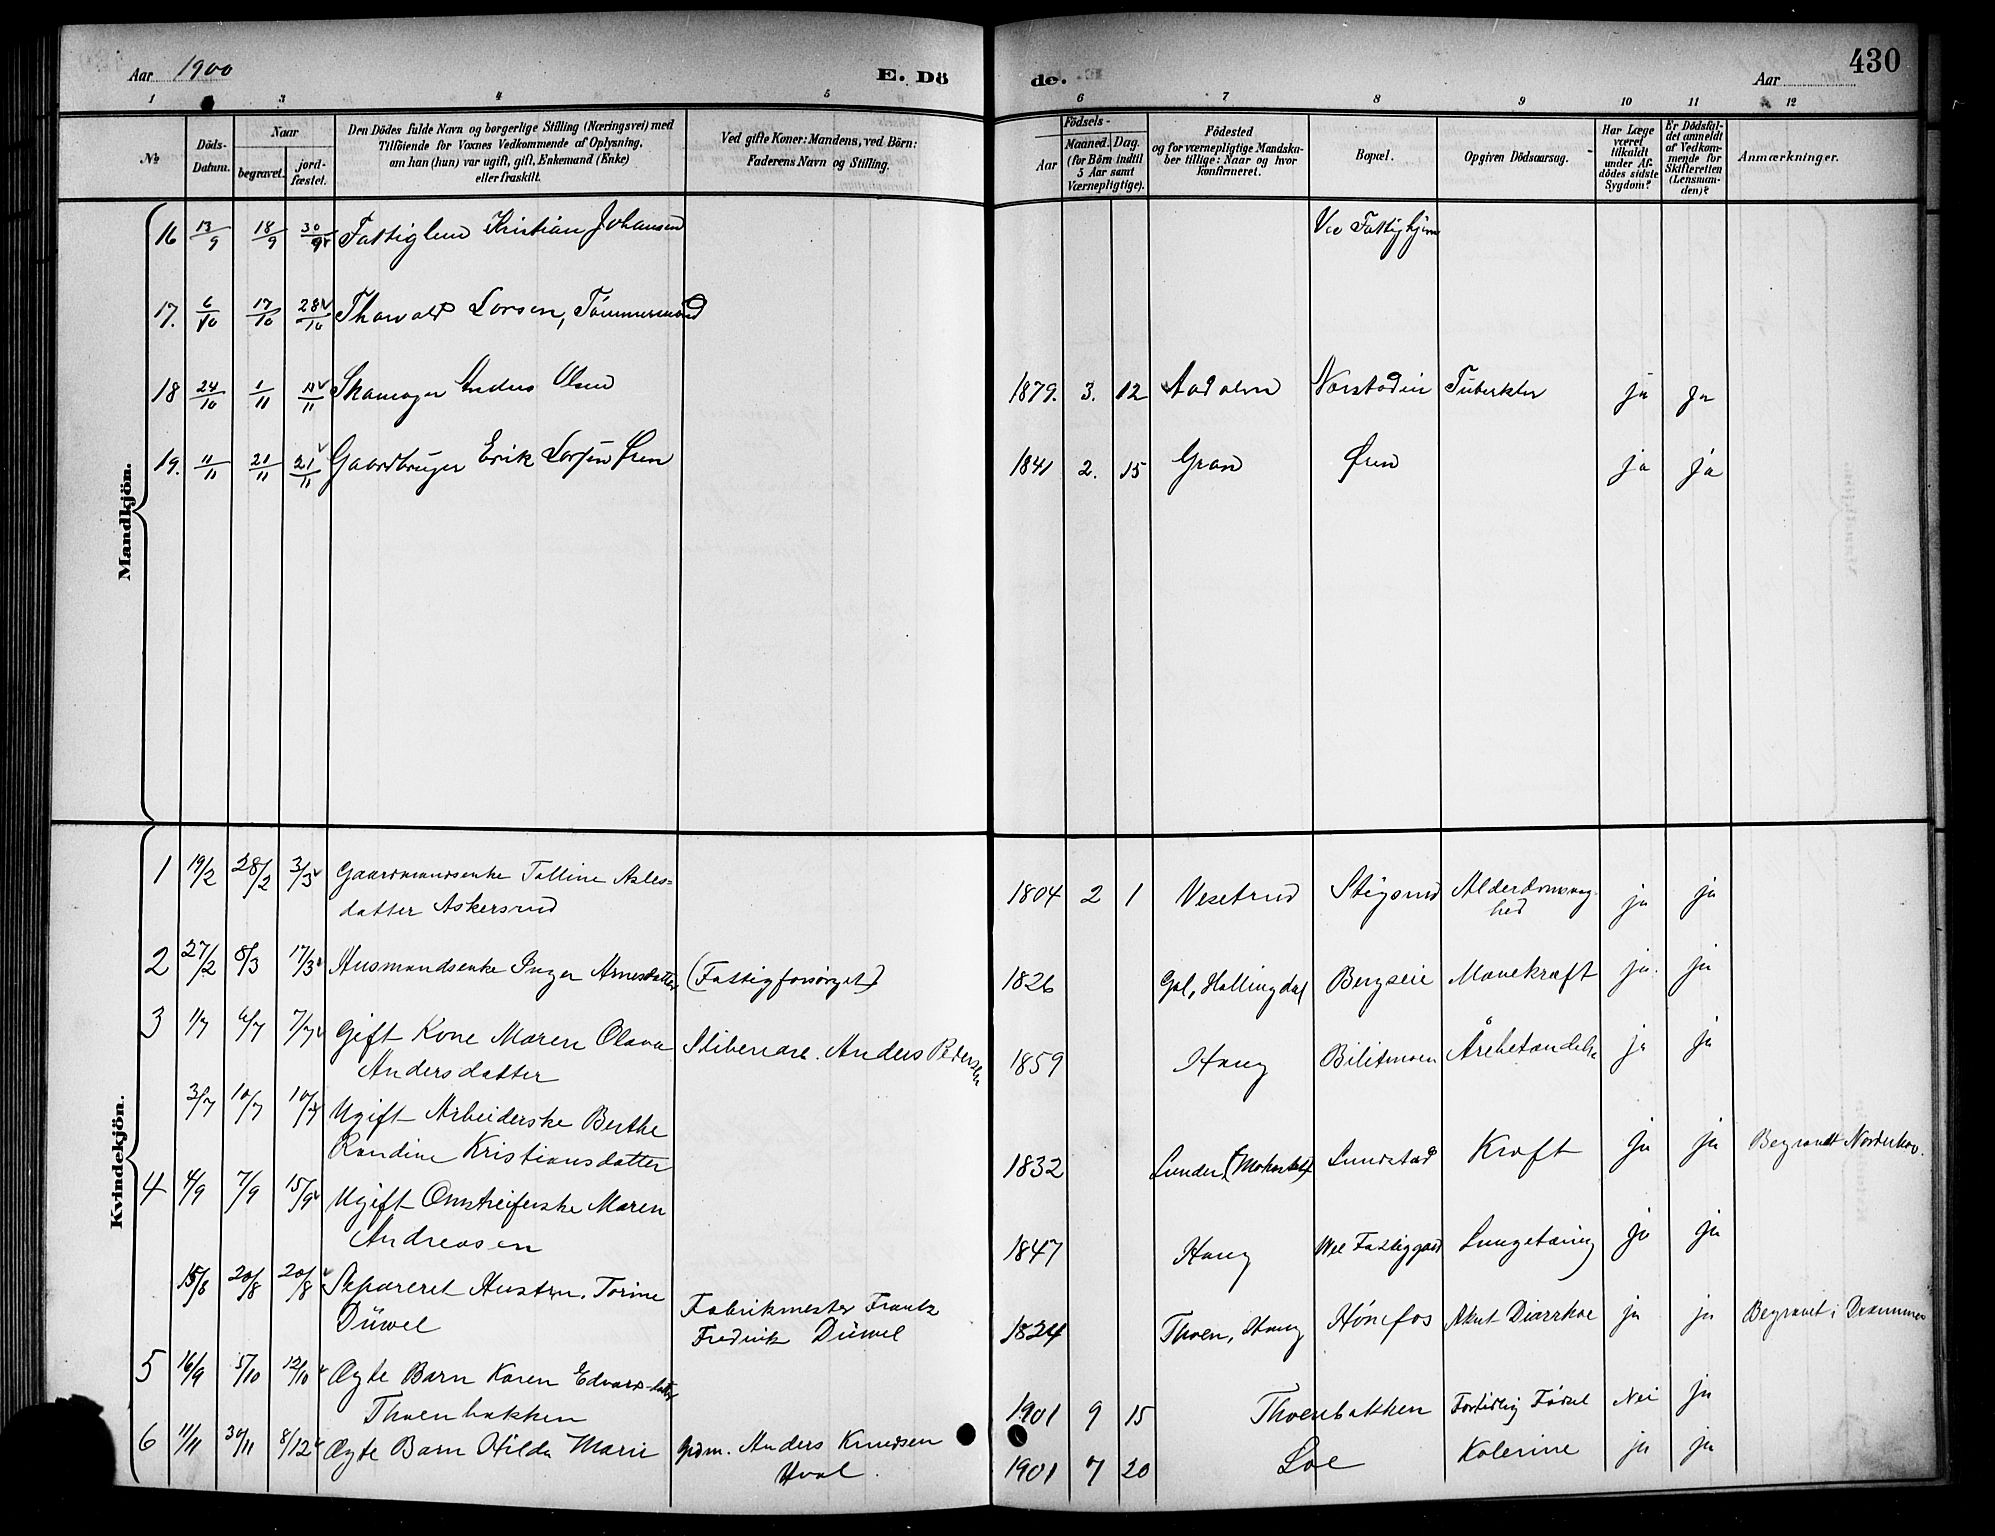 Aar 1900
E. Dö
de.
Aar
430
1 3 4 5 6 7 8 9 10 11 12
No
Döds-Datum.
Naar
begravet.
jord-fæstet.
Den Dödes fulde Navn og borgerlige Stilling (Næringsvei) med
Tilföiende for Voxnes Vedkommende af Oplysning,
om han (hun) var ugift, gift, Enkemand (Enke)
eller fraskilt.
Ved gifte Koner: Mandens, ved Börn:
Faderens Navn og Stilling.
Födsels-
Aar
Maaned.
Dag.
(for Börn indtil
5 Aar samt
Værnepligtige).
Födested
og for værnepligtige Mandska-
ber tillige: Naar og hvor
konfirmeret.
Bopæl.
Opgiven Dödsaarsag.
Har Læge
været
tilkaldt
under Af-
dödes sidste
Sygdom?
Er Dödsfal-
det anmeldt
af Vedkom-
mende for
Skifteretten
(Lensman-
den)?
Anmærkninger.
Mandkjön.
16 13/9 18/9 30/9 Fattiglem Kristian Johansen Fattighjem
17. 6/10 17/10 28/10 Thorvald Larsen, Tömmermand
18 24/10 1/11 /11 Anders Olsen 1879. 3. 12 Aadalen ja ja
19. 11/11 21/11 21/11 Gaardbruger Erik Larsen Øren 1841 2. 15 Gran Øren ja ja
Kvindekjön.
1 19/2 28/2 3/3 Gaardmandsenke Asles-
datter Askersrud 1804 2 1 Vesetrud Stigsrud Alderdomssvag-
hed ja ja
2 27/2 8/3 17/3 Husmandsenke Inger Arnesdatter (Fattigforsörget) 1826 Gol, Hallingdal Bergseie Mavekræft ja. ja
3 1/7 6/7 7/7 Gift Kone Maren Olava
Andersdatter Anders Pedersen 1859 Haug Bilitmoen Årebetændelse ja ja
3/7 10/7 10/7 Ugift Arbeiderske Berthe
Randine Kristiansdatter 1832 Lunder, Lundstad Kræft ja ja Begravet Norderhov.
4 4/9 7/9 15/9 Ugift Omstreiferske Maren
Andreasen 1847 Haug Fattiggaard Lungetæring ja ja
15/8 20/8 20/8 Separeret Hustru. Torine
Düwel Fabrikmester Frantz
Fredrik Düwel 1824 Thoen, Haug Hönefos Akut Diarrhoe ja ja Begravet i Drammen
5 16/9 5/10 12/10 Ægte Barn Karen Edvardsdatter
Thoenbakken 1901 9 15 Thoenbakken Fortidlig Födsel Nei ja
6 11/11 30/11 8/12 Ægte Barn Hilda Marie Grdm. Anders Knudsen
Hval. 1901 7 20 Loe Kolerine ja ja